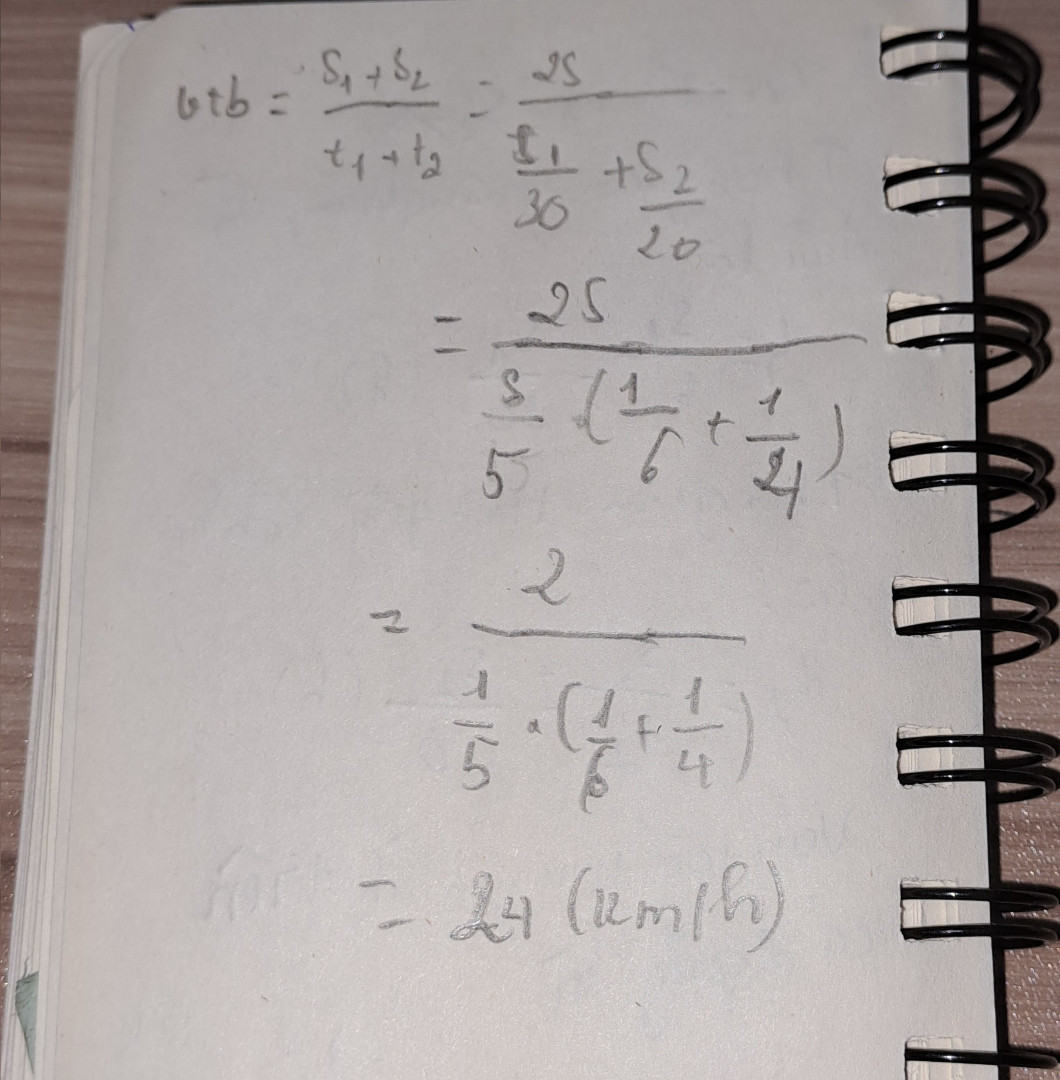 vtb = (S1 + S2)/(t1 + t2) = 2S/(S1/30 + S2/20)
= 2S/(S/5 · (1/6 + 1/4))
= 2/(1/5 · (1/6 + 1/4))
= 24 (km/h)